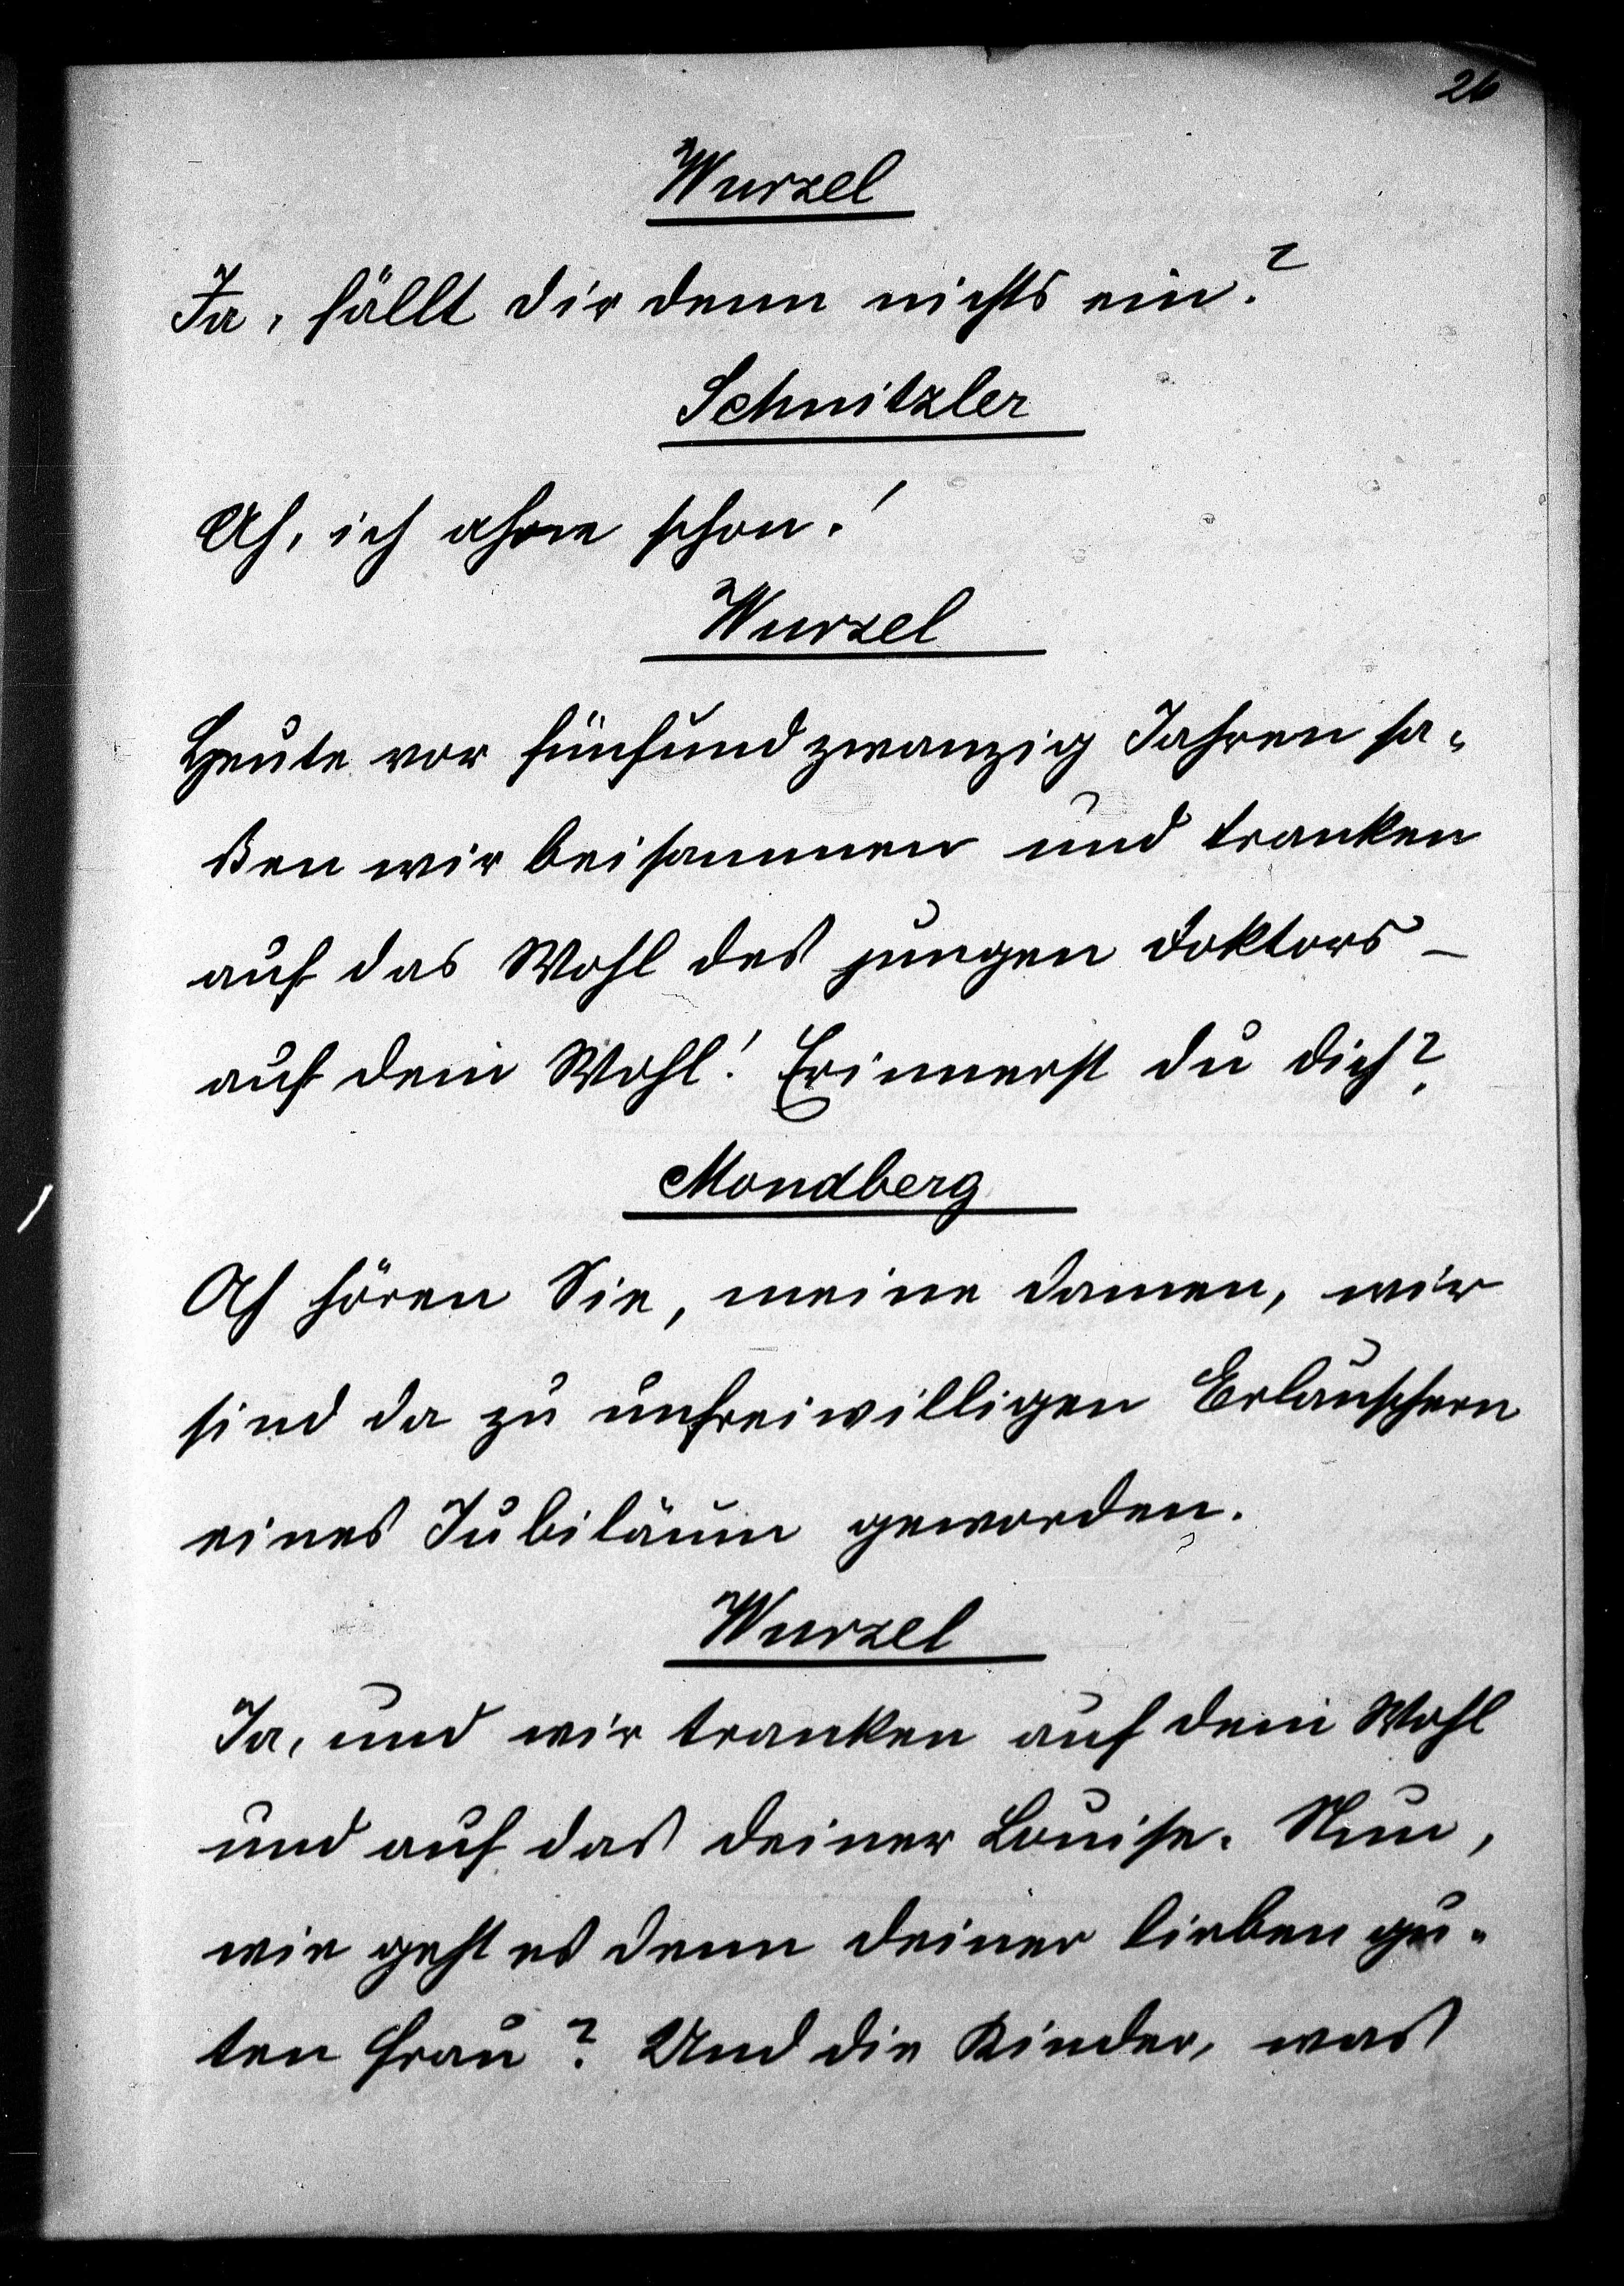 26
Wurzel
Ja, fällt dir denn nichts ein?
Schnitzler
Ah, ich ahne schon!
Wurzel
Heute vor fünfundzwanzig Jahren sa-
ßen wir beisammen und tranken
auf das Wohl des jungen Doktors –
auf dein Wohl! Erinnerst du dich?
Mondberg
Ah hören Sie, meine Damen, wir
sind da zu unfreiwilligen Erlauschern
eines Jubiläum geworden.
Wurzel
Ja, und wir tranken auf dein Wohl
und auf das deiner Louise. Nun,
wie geht es denn deiner lieben gu-
ten Frau? Und die Kinder, was